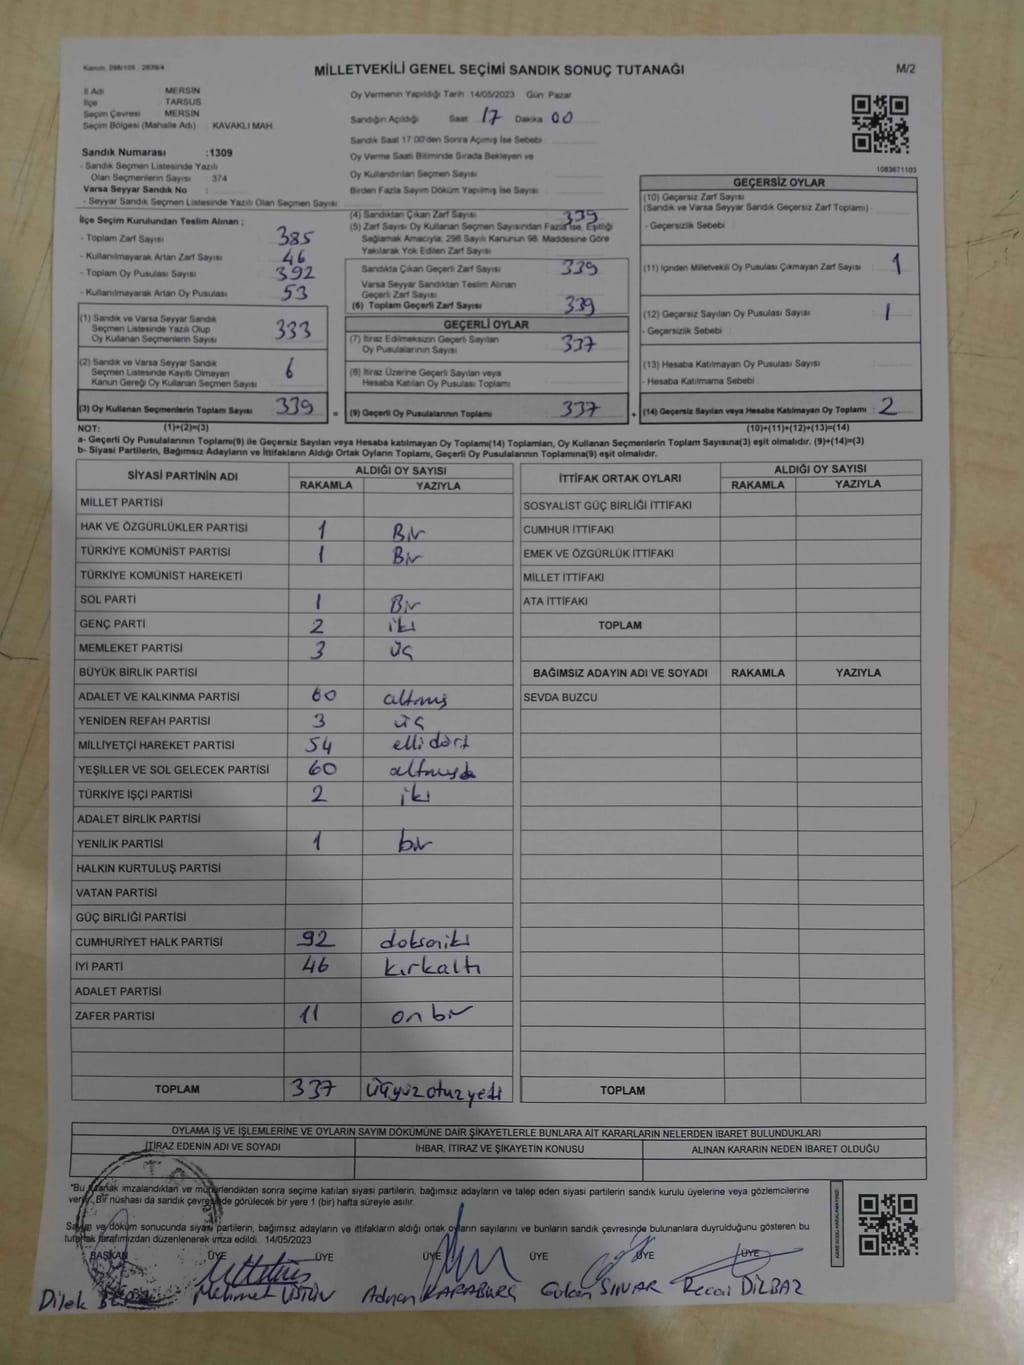 Kanun, 298/105 - 2839/4
MİLLETVEKİLİ GENEL SEÇİMİ SANDIK SONUÇ TUTANAĞI
M/2
İl Adı : MERSİN
İlçe : TARSUS
Seçim Çevresi : MERSİN
Seçim Bölgesi (Mahalle Adı) : KAVAKLI MAH.
Oy Vermenin Yapıldığı Tarih :14/05/2023 Gün: Pazar
Sandığın Açıldığı Saat 17 Dakika 00
Sandık Saat 17.00'den Sonra Açılmış İse Sebebi :
Oy Verme Saati Bitiminde Sırada Bekleyen ve
Oy Kullandırılan Seçmen Sayısı :
Birden Fazla Sayım Döküm Yapılmış İse Sayısı :
1083671103
Sandık Numarası :1309
- Sandık Seçmen Listesinde Yazılı
Olan Seçmenlerin Sayısı : 374
Varsa Seyyar Sandık No :
- Seyyar Sandık Seçmen Listesinde Yazılı Olan Seçmen Sayısı :
İlçe Seçim Kurulundan Teslim Alınan ;
- Toplam Zarf Sayısı : 385
- Kullanılmayarak Artan Zarf Sayısı : 46
- Toplam Oy Pusulası Sayısı : 392
- Kullanılmayarak Artan Oy Pusulası : 53
(1) Sandık ve Varsa Seyyar Sandık
Seçmen Listesinde Yazılı Olup
Oy Kullanan Seçmenlerin Sayısı : 333
(2) Sandık ve Varsa Seyyar Sandık
Seçmen Listesinde Kayıtlı Olmayan
Kanun Gereği Oy Kullanan Seçmen Sayısı : 6
(3) Oy Kullanan Seçmenlerin Toplam Sayısı : 339
(4) Sandıktan Çıkan Zarf Sayısı : 339
(5) Zarf Sayısı Oy Kullanan Seçmen Sayısından Fazla İse, Eşitliği
Sağlamak Amacıyla; 298 Sayılı Kanunun 98. Maddesine Göre
Yakılarak Yok Edilen Zarf Sayısı :
Sandıkta Çıkan Geçerli Zarf Sayısı : 339
Varsa Seyyar Sandıktan Teslim Alınan
Geçerli Zarf Sayısı :
(6) Toplam Geçerli Zarf Sayısı : 339
GEÇERLİ OYLAR
(7) İtiraz Edilmeksizin Geçerli Sayılan
Oy Pusulalarının Sayısı : 337
(8) İtiraz Üzerine Geçerli Sayılan veya
Hesaba Katılan Oy Pusulası Toplamı :
= (9) Geçerli Oy Pusulalarının Toplamı : 337
GEÇERSİZ OYLAR
(10) Geçersiz Zarf Sayısı
(Sandık ve Varsa Seyyar Sandık Geçersiz Zarf Toplamı) :
- Geçersizlik Sebebi :
(11) İçinden Milletvekili Oy Pusulası Çıkmayan Zarf Sayısı : 1
(12) Geçersiz Sayılan Oy Pusulası Sayısı : 1
- Geçersizlik Sebebi :
(13) Hesaba Katılmayan Oy Pusulası Sayısı :
- Hesaba Katılmama Sebebi :
+ (14) Geçersiz Sayılan veya Hesaba Katılmayan Oy Toplamı : 2
NOT: (1)+(2)=(3) (10)+(11)+(12)+(13)=(14)
a- Geçerli Oy Pusulalarının Toplamı(9) ile Geçersiz Sayılan veya Hesaba katılmayan Oy Toplamı(14) Toplamları, Oy Kullanan Seçmenlerin Toplam Sayısına(3) eşit olmalıdır. (9)+(14)=(3)
b- Siyasi Partilerin, Bağımsız Adayların ve İttifakların Aldığı Ortak Oyların Toplamı, Geçerli Oy Pusulalarının Toplamına(9) eşit olmalıdır.
SİYASİ PARTİNİN ADI ALDIĞI OY SAYISI
RAKAMLA YAZIYLA
MİLLET PARTİSİ
HAK VE ÖZGÜRLÜKLER PARTİSİ 1 Bir
TÜRKİYE KOMÜNİST PARTİSİ 1 Bir
TÜRKİYE KOMÜNİST HAREKETİ
SOL PARTİ 1 Bir
GENÇ PARTİ 2 iki
MEMLEKET PARTİSİ 3 üç
BÜYÜK BİRLİK PARTİSİ
ADALET VE KALKINMA PARTİSİ 60 altmış
YENİDEN REFAH PARTİSİ 3 üç
MİLLİYETÇİ HAREKET PARTİSİ 54 elli dört
YEŞİLLER VE SOL GELECEK PARTİSİ 60 altmış
TÜRKİYE İŞÇİ PARTİSİ 2 iki
ADALET BİRLİK PARTİSİ
YENİLİK PARTİSİ 1 bir
HALKIN KURTULUŞ PARTİSİ
VATAN PARTİSİ
GÜÇ BİRLİĞİ PARTİSİ
CUMHURİYET HALK PARTİSİ 92 doksaniki
İYİ PARTİ 46 kırkaltı
ADALET PARTİSİ
ZAFER PARTİSİ 11 on bir
TOPLAM 337 üçyüzotuzyedi
İTTİFAK ORTAK OYLARI ALDIĞI OY SAYISI
RAKAMLA YAZIYLA
SOSYALİST GÜÇ BİRLİĞİ İTTİFAKI
CUMHUR İTTİFAKI
EMEK VE ÖZGÜRLÜK İTTİFAKI
MİLLET İTTİFAKI
ATA İTTİFAKI
TOPLAM
BAĞIMSIZ ADAYIN ADI VE SOYADI RAKAMLA YAZIYLA
SEVDA BUZCU
TOPLAM
OYLAMA İŞ VE İŞLEMLERİNE VE OYLARIN SAYIM DÖKÜMÜNE DAİR ŞİKAYETLERLE BUNLARA AİT KARARLARIN NELERDEN İBARET BULUNDUKLARI
İTİRAZ EDENİN ADI VE SOYADI İHBAR, İTİRAZ VE ŞİKAYETİN KONUSU ALINAN KARARIN NEDEN İBARET OLDUĞU
*Bu tutanak imzalandıktan ve mühürlendikten sonra seçime katılan siyasi partilerin, bağımsız adayların ve talep eden siyasi partilerin sandık kurulu üyelerine veya gözlemcilerine
verilir. Bir nüshası da sandık çevresinde görülecek bir yere 1 (bir) hafta süreyle asılır.
Sayım ve döküm sonucunda siyasi partilerin, bağımsız adayların ve ittifakların aldığı ortak oyların sayılarını ve bunların sandık çevresinde bulunanlara duyrulduğunu gösteren bu
tutanak tarafımızdan düzenlenerek imza edildi. 14/05/2023
BAŞKAN ÜYE ÜYE ÜYE ÜYE ÜYE ÜYE
Dilek Mehmet ÜSTÜN Adnan KARABURÇ Gülcan SINAR Recai DİLBAZ